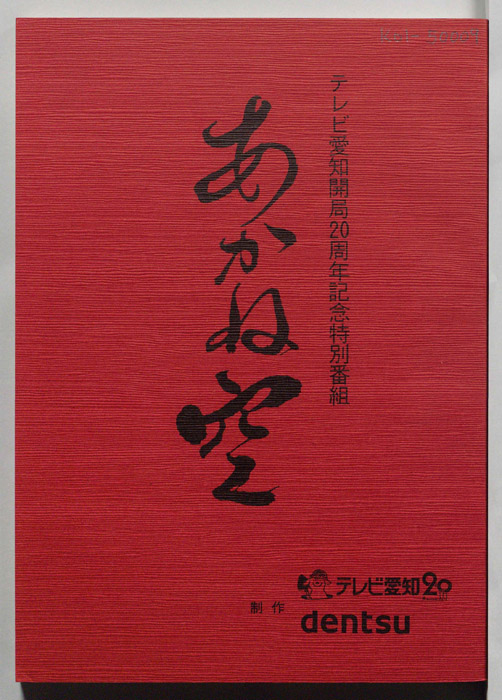 テレビ愛知開局20周年記念特別番組
あかね空
制作
テレビ愛知20
dentsu